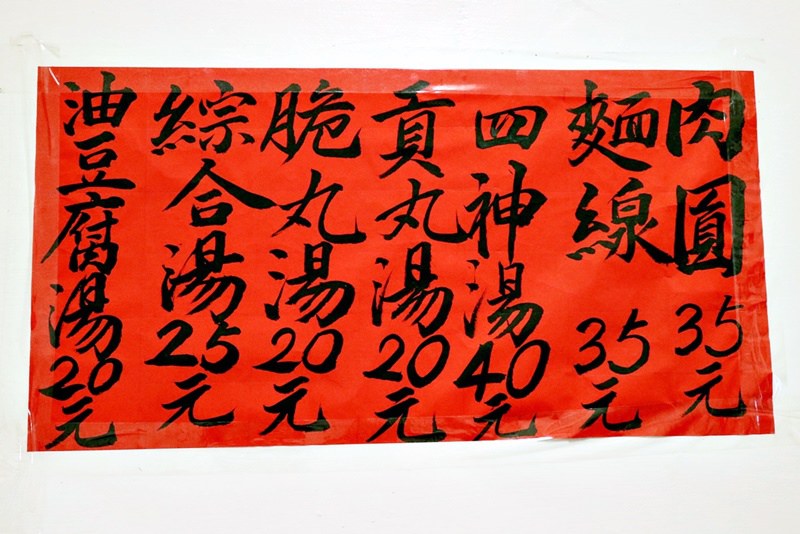 肉圓35元
麵線35元
四神湯40元
貢丸湯20元
脆丸湯20元
綜合湯25元
油豆腐湯20元